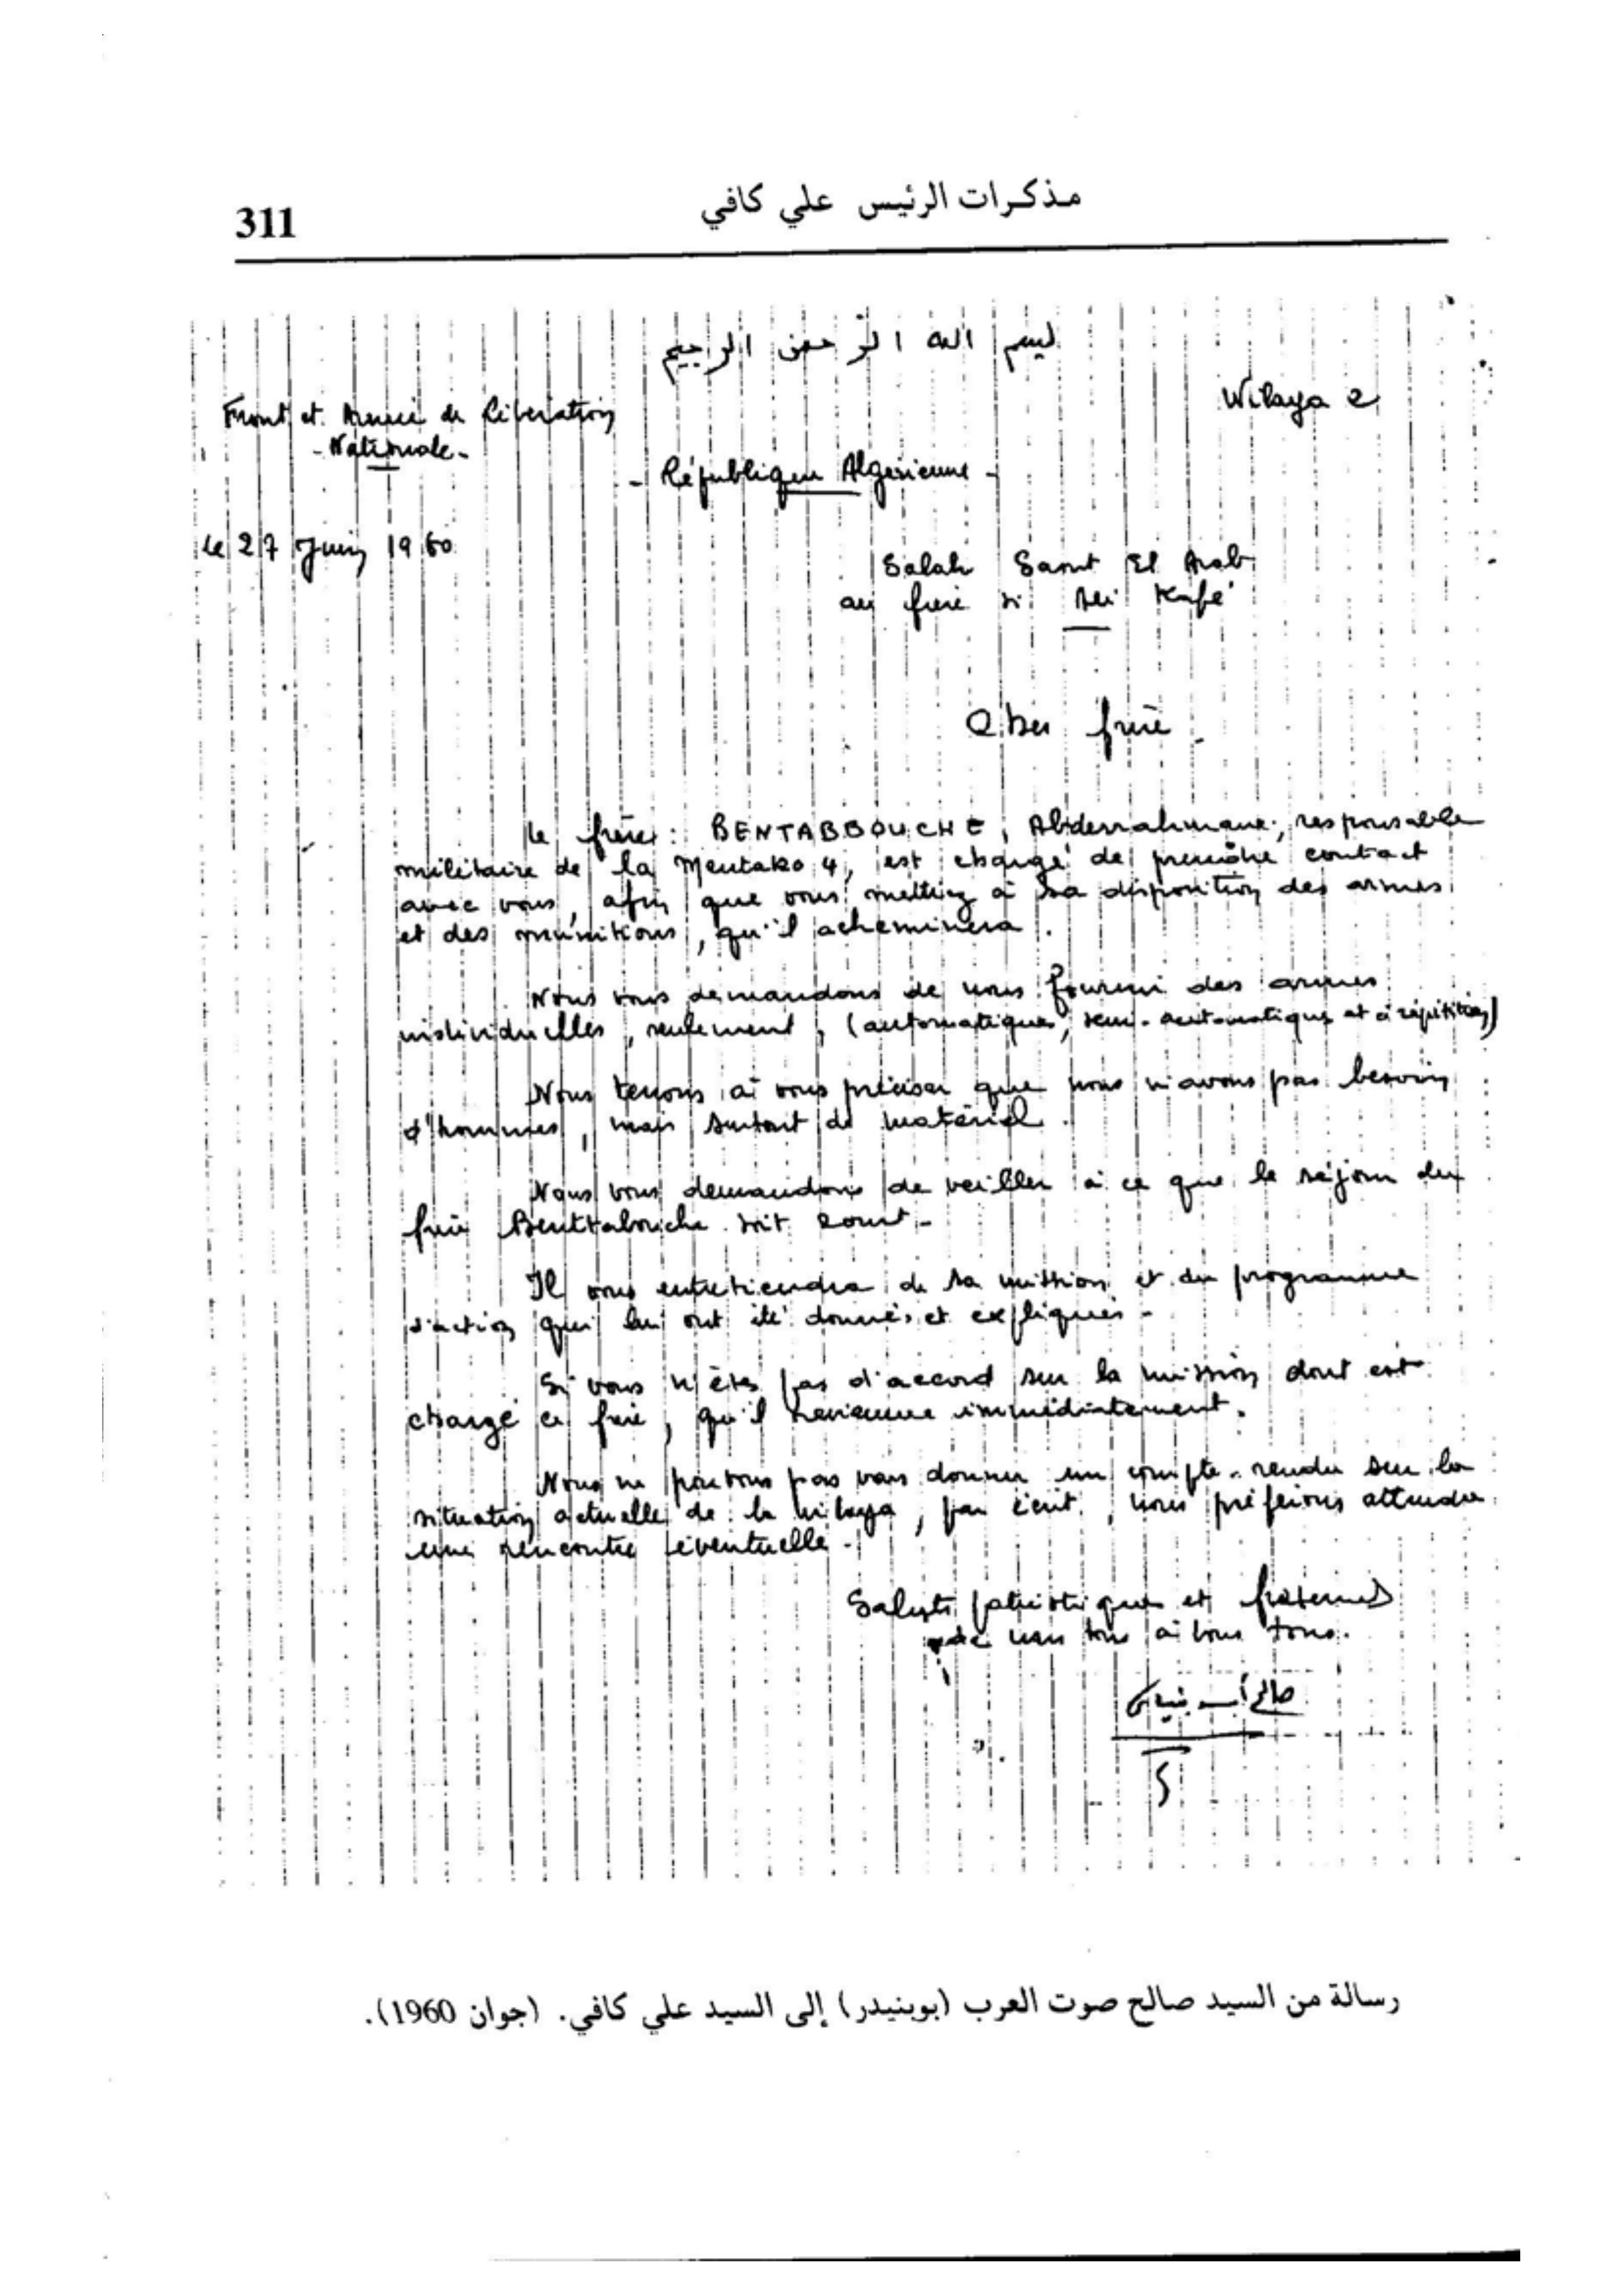 مذكرات الرئيس علي كافي
311
بسم الله الرحمن الرحيم
Wilaya 2
Front et Armée de Libération
- Nationale -
- République Algérienne -
le 27 Juin 1960
Salah Saout El Arab
au frère si Ali Kafi
Cher frère
Le frère : BENTABBOUCHE, Abderrahmane, responsable
militaire de la Mentaka 4, est chargé de prendre contact
avec vous, afin que vous mettiez à sa disposition des armes
et des munitions, qu'il acheminera.
Nous vous demandons de nous fournir des armes
individuelles, seulement, (automatiques, semi-automatiques et à répétition)
Nous tenons à vous préciser que nous n'avons pas besoin
d'hommes, mais surtout de matériel.
Nous vous demandons de veiller à ce que le séjour du
frère Benttabouche soit court -
Il vous entretiendra de sa mission et du programme
d'action qui lui ont été donnés et expliqués -
Si vous n'êtes pas d'accord sur la mission dont est
chargé ce frère, qu'il revienne immédiatement.
Nous ne pouvons pas vous donner un compte-rendu sur la
situation actuelle de la wilaya, par écrit, nous préférons attendre
une rencontre éventuelle -
Saluts patriotiques et fraternels
de nous tous à vous tous.
صالح
رسالة من السيد صالح صوت العرب (بوبنيدر) إلى السيد علي كافي. (جوان 1960).